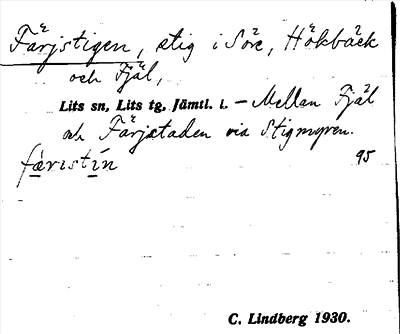 Färjstigen, stig i Söre, Hökbäck
och Fjäl,
Lits sn, Lits tg, Jämtl. l. – Mellan Fjäl
och Färjstaden via Stigmyren.
færıstı́n
95
C. Lindberg 1930.